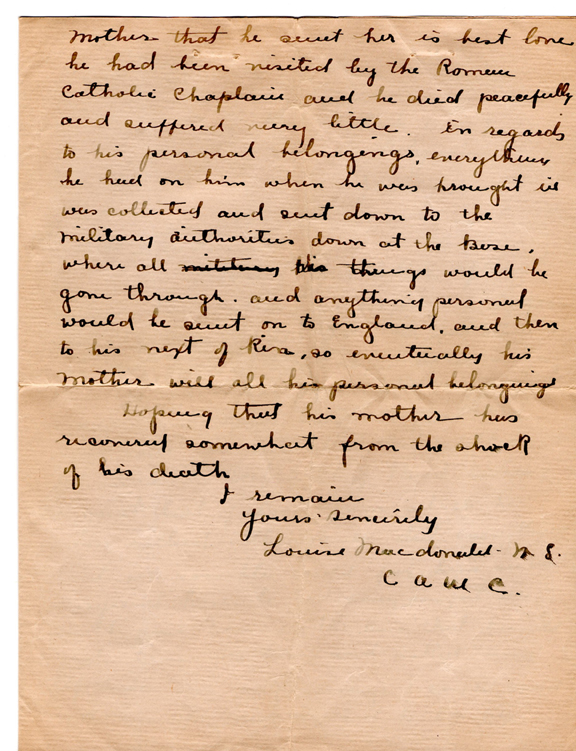 Mother that he sent her is best love
he had been visited by the Roman
Catholic Chaplain and he died peacefully
and suffered very little. In regards
to his personal belongings, everything
he had on him when he was brought in
was collected and sent down to the
military authorities down at the Base,
where all military his things would be
gone through. and anything personal
would be sent on to England, and then
to his next of Kin, so eventually his
Mother will all his personal belongings
Hoping that his mother has
recovered somewhat from the shock
of his death
I remain
Yours Sincerely
Louise Macdonald N S.
C A M C.